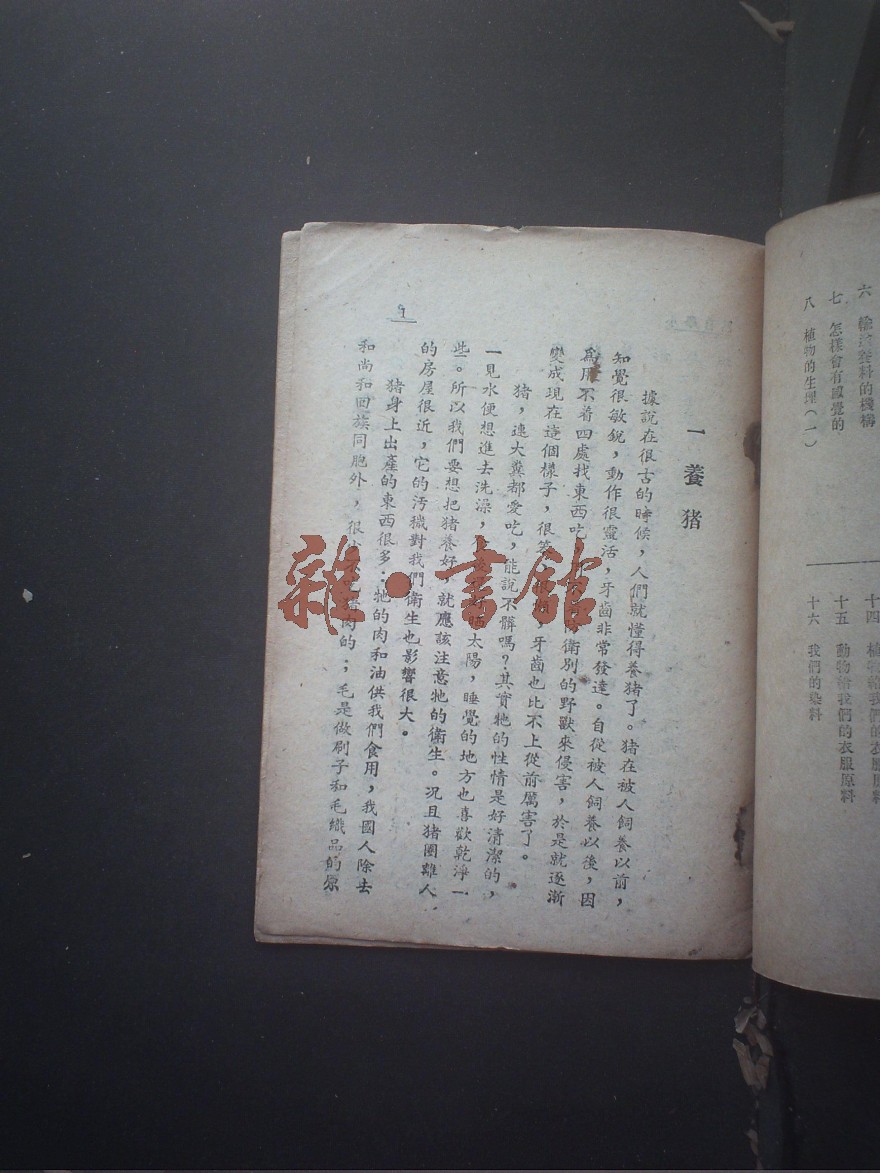 六 輸送養料的機構
七 怎樣會有感覺的
八 植物的生理（一）
十四 植物給我們的衣服原料
十五 動物給我們的衣服原料
十六 我們的染料
一 養猪
據說在很古的時候，人們就懂得養猪了。猪在被人飼養以前，
知覺很敏銳，動作很靈活，牙齒非常發達。自從被人飼養以後，因
為用不着四處找東西吃，衛別的野獸來侵害，於是就逐漸
變成現在這個樣子，很笨，牙齒也比不上從前厲害了。
猪，連大糞都愛吃，能說不髒嗎？其實牠的性情是好清潔的，
一見水便想進去洗澡，太陽，睡覺的地方也喜歡乾淨一
些。所以我們要想把猪養好，就應該注意牠的衛生。況且猪圈離人
的房屋很近，它的汚穢對我們衛生也影響很大。
猪身上出產的東西很多：牠的肉和油供我們食用，我國人除去
和尚和回族同胞外，很少不吃猪肉的；毛是做刷子和毛織品的原
雜·書館